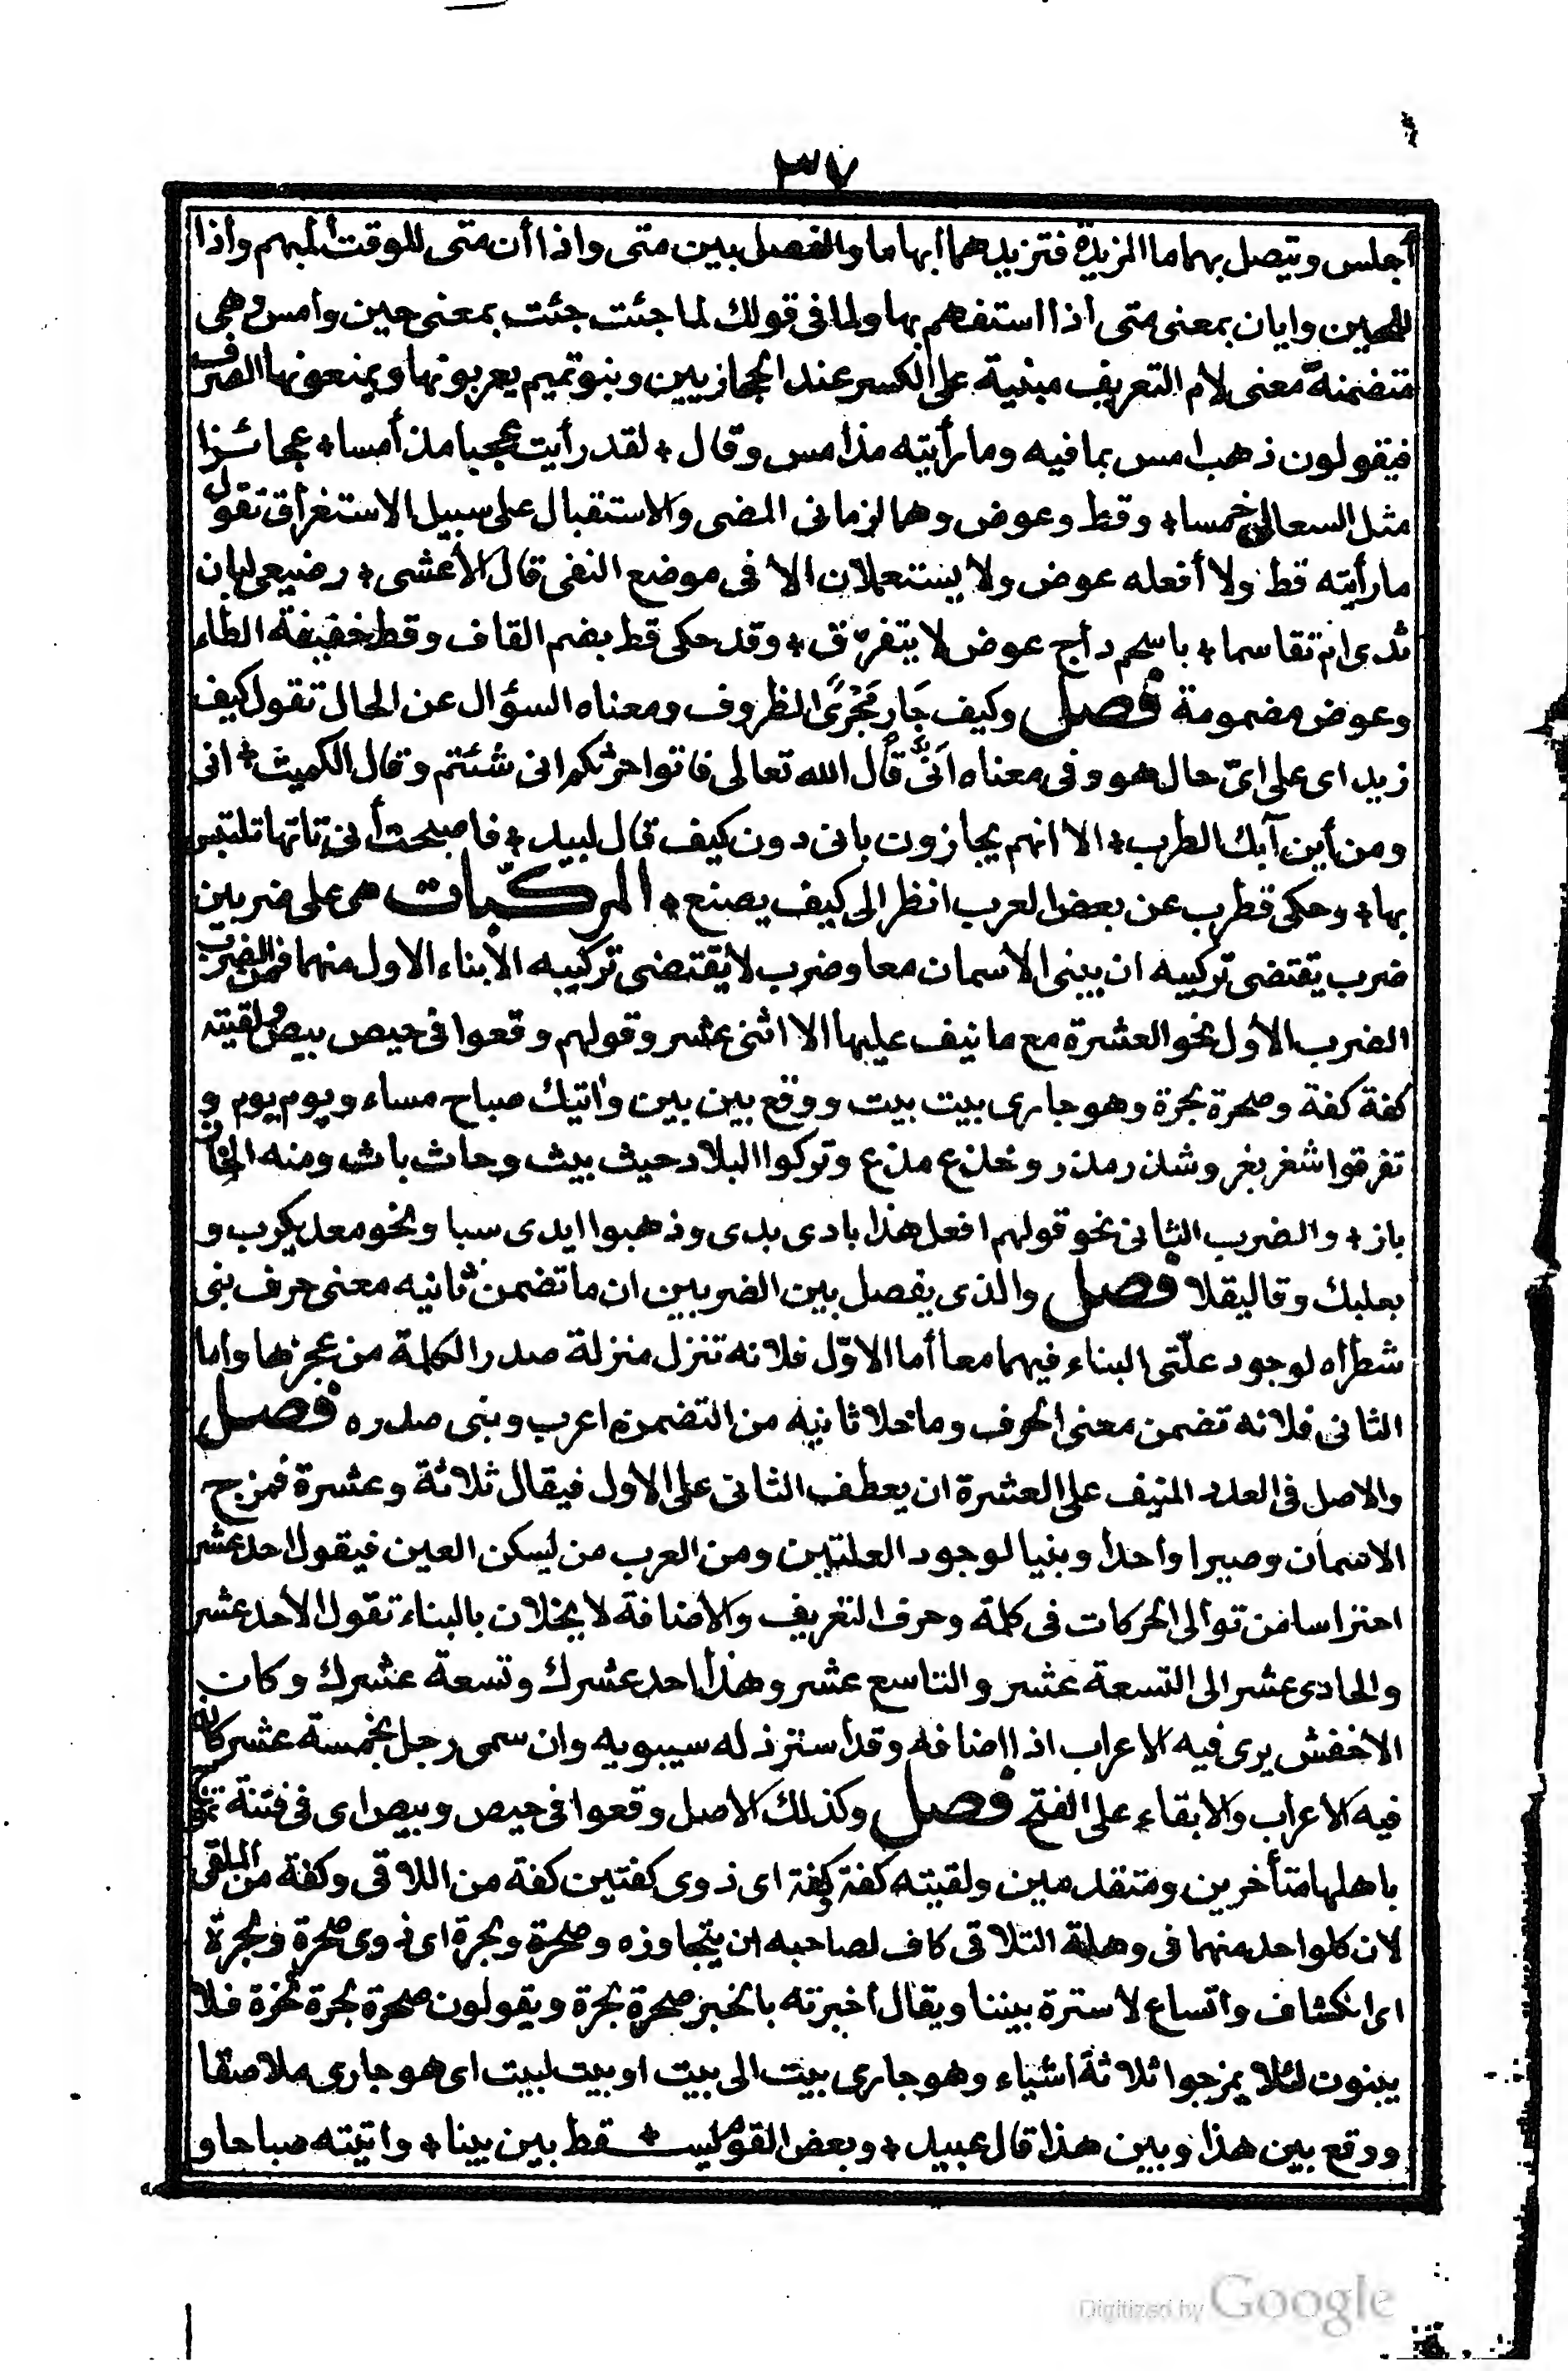 ٣٧
أجلس ويتصل بهما ما المزيدة فتزيدهما ابهاما والفصل بين متى واذا أن متى للوقت المبهم واذا
للمعين وايان بمعنى متى اذا استفهم بها ولما فى قولك لما جئت جئت بمعنى حين وامس وهى
متضمنة معنى لام التعريف مبنية على الكسر عند الحجازيين وبنو تميم يعربونها ويمنعونها الصرف
فيقولون ذهب امس بما فيه وما رأيته مذ امس وقال * لقد رأيت عجبا مذ أمسا * عجائزا
مثل السعالى خمسا * وقط وعوض وهما لزمانى المضى والاستقبال على سبيل الاستغراق تقول
ما رأيته قط ولا أفعله عوض ولا يستعملان الا فى موضع النفى قال الأعشى * رضيعى لبان
ثدى ام تقاسما * باسحم داج عوض لا يتفرّق * وقد حكى قط بضم القاف وقط خفيفة الطاء
وعوض مضمومة فصل وكيف جَارٍ مَجْرَى الظروف ومعناه السؤال عن الحال تقول كيف
زيد اى على اىّ حال هو وفى معناه اَنّى قال الله تعالى فاتوا حرثكم انى شئتم وقال الكميت * انى
ومن أين آبك الطرب * الا انهم يجازون بانى دون كيف قال لبيد * فاصبحت أنى تاتها تلتبس
بها * وحكى قطرب عن بعض العرب انظر الى كيف يصنع * المركّبات هى على ضربين
ضرب يقتضى تركيبه ان يبنى الاسمان معا وضرب لا يقتضى تركيبه الا بناء الاول منهما فمن الضرب
الضرب الأول نحو العشرة مع ما نيف عليها الا اثنى عشر وقولهم وقعوا فى حيص بيص ولقيته
كفة كفة وصحرة بحرة وهو جارى بيت بيت ووقع بين بين واتيك صباح مساء ويوم يوم و
تفرقوا شغر بغر وشذر مذر وخذع مذع وتركوا البلاد حيث بيث وحاث باث ومنه الخاز
باز * والضرب الثانى نحو قولهم افعل هذا بادى بدى وذهبوا ايدى سبا ونحو معديكرب و
بعلبك وقاليقلا فصل والذى يفصل بين الضربين ان ما تضمن ثانيه معنى حرف بنى
شطراه لوجود علّتى البناء فيهما معا أما الاوّل فلانه تنزل منزلة صدر الكلمة من عجزها واما
الثانى فلانه تضمن معنى الحرف وما خلا ثانيه من التضمن اعرب وبنى صدره فصل
والاصل فى العدد المنيف على العشرة ان يعطف الثانى على الاول فيقال ثلاثة وعشرة فمزج
الاسمان وصيرا واحدا وبنيا لوجود العلتين ومن العرب من يسكن العين فيقول احد عشر
احتراسا من توالى الحركات فى كلمة وحرف التعريف والاضافة لا يخلان بالبناء تقول الأحد عشر
والحادى عشر الى التسعة عشر والتاسع عشر وهذا احد عشرك وتسعة عشرك وكان
الاخفش يرى فيه الاعراب اذا اضافه وقد استرذله سيبويه وان سمى رجل بخمسة عشر كان
فيه الاعراب والابقاء على الفتح فصل وكذلك الاصل وقعوا فى حيص وبيص اى فى فتنة تموج
باهلها متأخرين ومتقدمين ولقيته كفة وكفة اى ذوى كفتين كفة من اللاقى وكفة من الملقى
لان كلواحد منهما فى وهلة التلاقى كاف لصاحبه ان يتجاوزه وصحرة وبحرة اى ذوى صحرة وبحرة
اى انكشاف واتساع لا سترة بيننا ويقال أخبرته بالخبر صحرة بحرة ويقولون صحرة بحرة نحرة فلا
يبنون لئلا يمزجوا ثلاثة أشياء وهو جارى بيت الى بيت او بيت لبيت اى هو جارى ملاصقا
ووقع بين هذا وبين هذا قال عبيد * وبعض القوم يسقط بين بينا * واتيته صباحا و
Digitized by Google